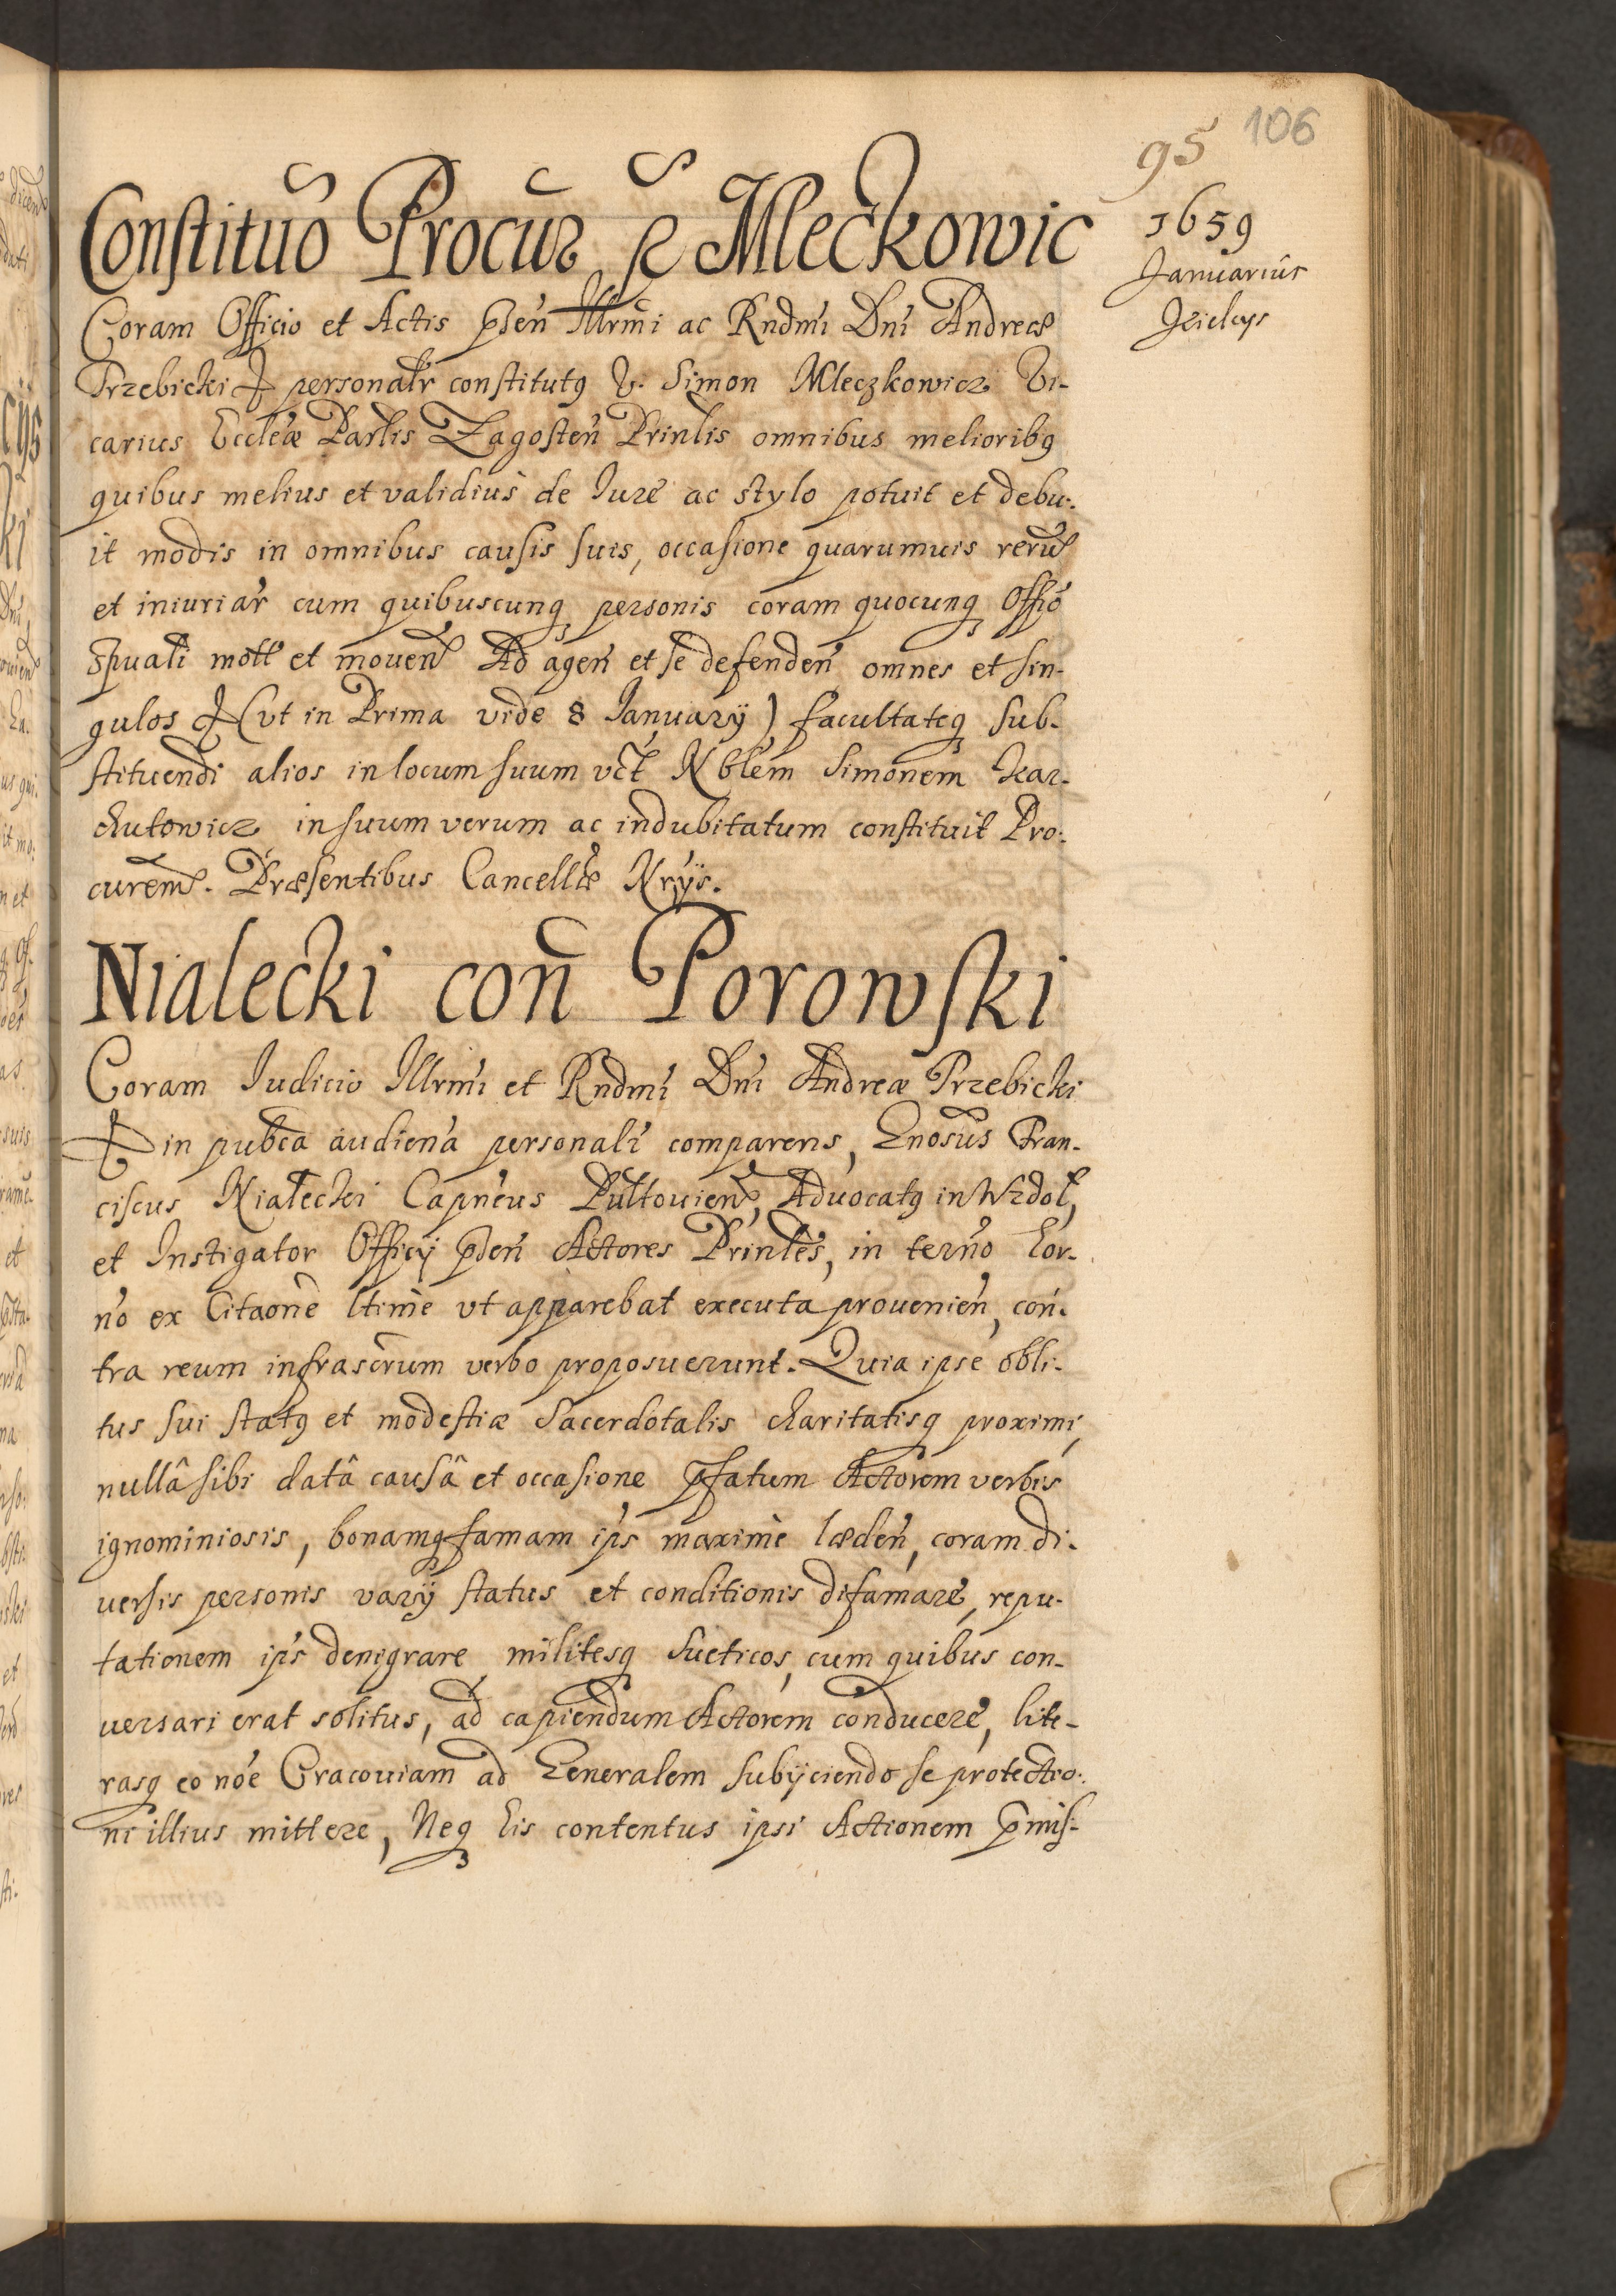 95 106
1659
Januariûs
Kielcys
Constituõ Procur p Mleckowic
Coram Officio et Actis pñseñ Illrmi ac Rndmi Dni Andreæ
Trzebicki & personalr constitutq V. Simon Mleczkowicz Vi-
carius Eccleæ Parlis Zagosteñ Prinlis omnibus melioribq
quibus melius et validius de Iure ac stylo potuit et debu-
it modis in omnibus causis suis, occasione quarumuis rerũ
et iniuriar cum quibuscunq personis coram quocunq Offio
Spuali mott et moueñ Ad ageñ et se defendeñ omnes et sin-
gulos & (vt in Prima vide 8 Januarÿ) facultateq sub-
stituendi alios in locum suum vct Nblem Simonem Kar-
chutowicz in suum verum ac indubitatum constituit Pro-
curem. Præsentibus Cancellæ Nrÿs.
Nialecki coñ Porowski
Coram Iudicio Illrmi et Rndmi Dni Andreæ Trzebicki
& in pubca audiena personali comparens, Gnosus Fran-
ciscus Nialecki Capneus Pultouieñ, Aduocatq in Wzdol,
et Instigator Officÿ pdeñ Actores Prinles, in terno hor-
no ex Citaone ltime vt apparebat executa prouenieñ, con-
tra reum infrascrum verbo proposuerunt. Quia ipse obli-
tus sui statq et modestiæ Sacerdotalis charitatisq proximi,
nullâ sibi datâ causâ et occasione pfatum Actorem verbis
ignominiosis, bonamq famam ips maxime lædeñ, coram di-
uersis personis varÿ status et conditionis difamare, repu-
tationem ips denigrare militesq Sueticos, cum quibus con-
uersari erat solitus, ad capiendum Actorem conducere, lite-
rasq eo noe Cracouiam ad Generalem subÿciendo se protectio-
ni illius mittere, Neq his contentus ipsi Actionem pmis-